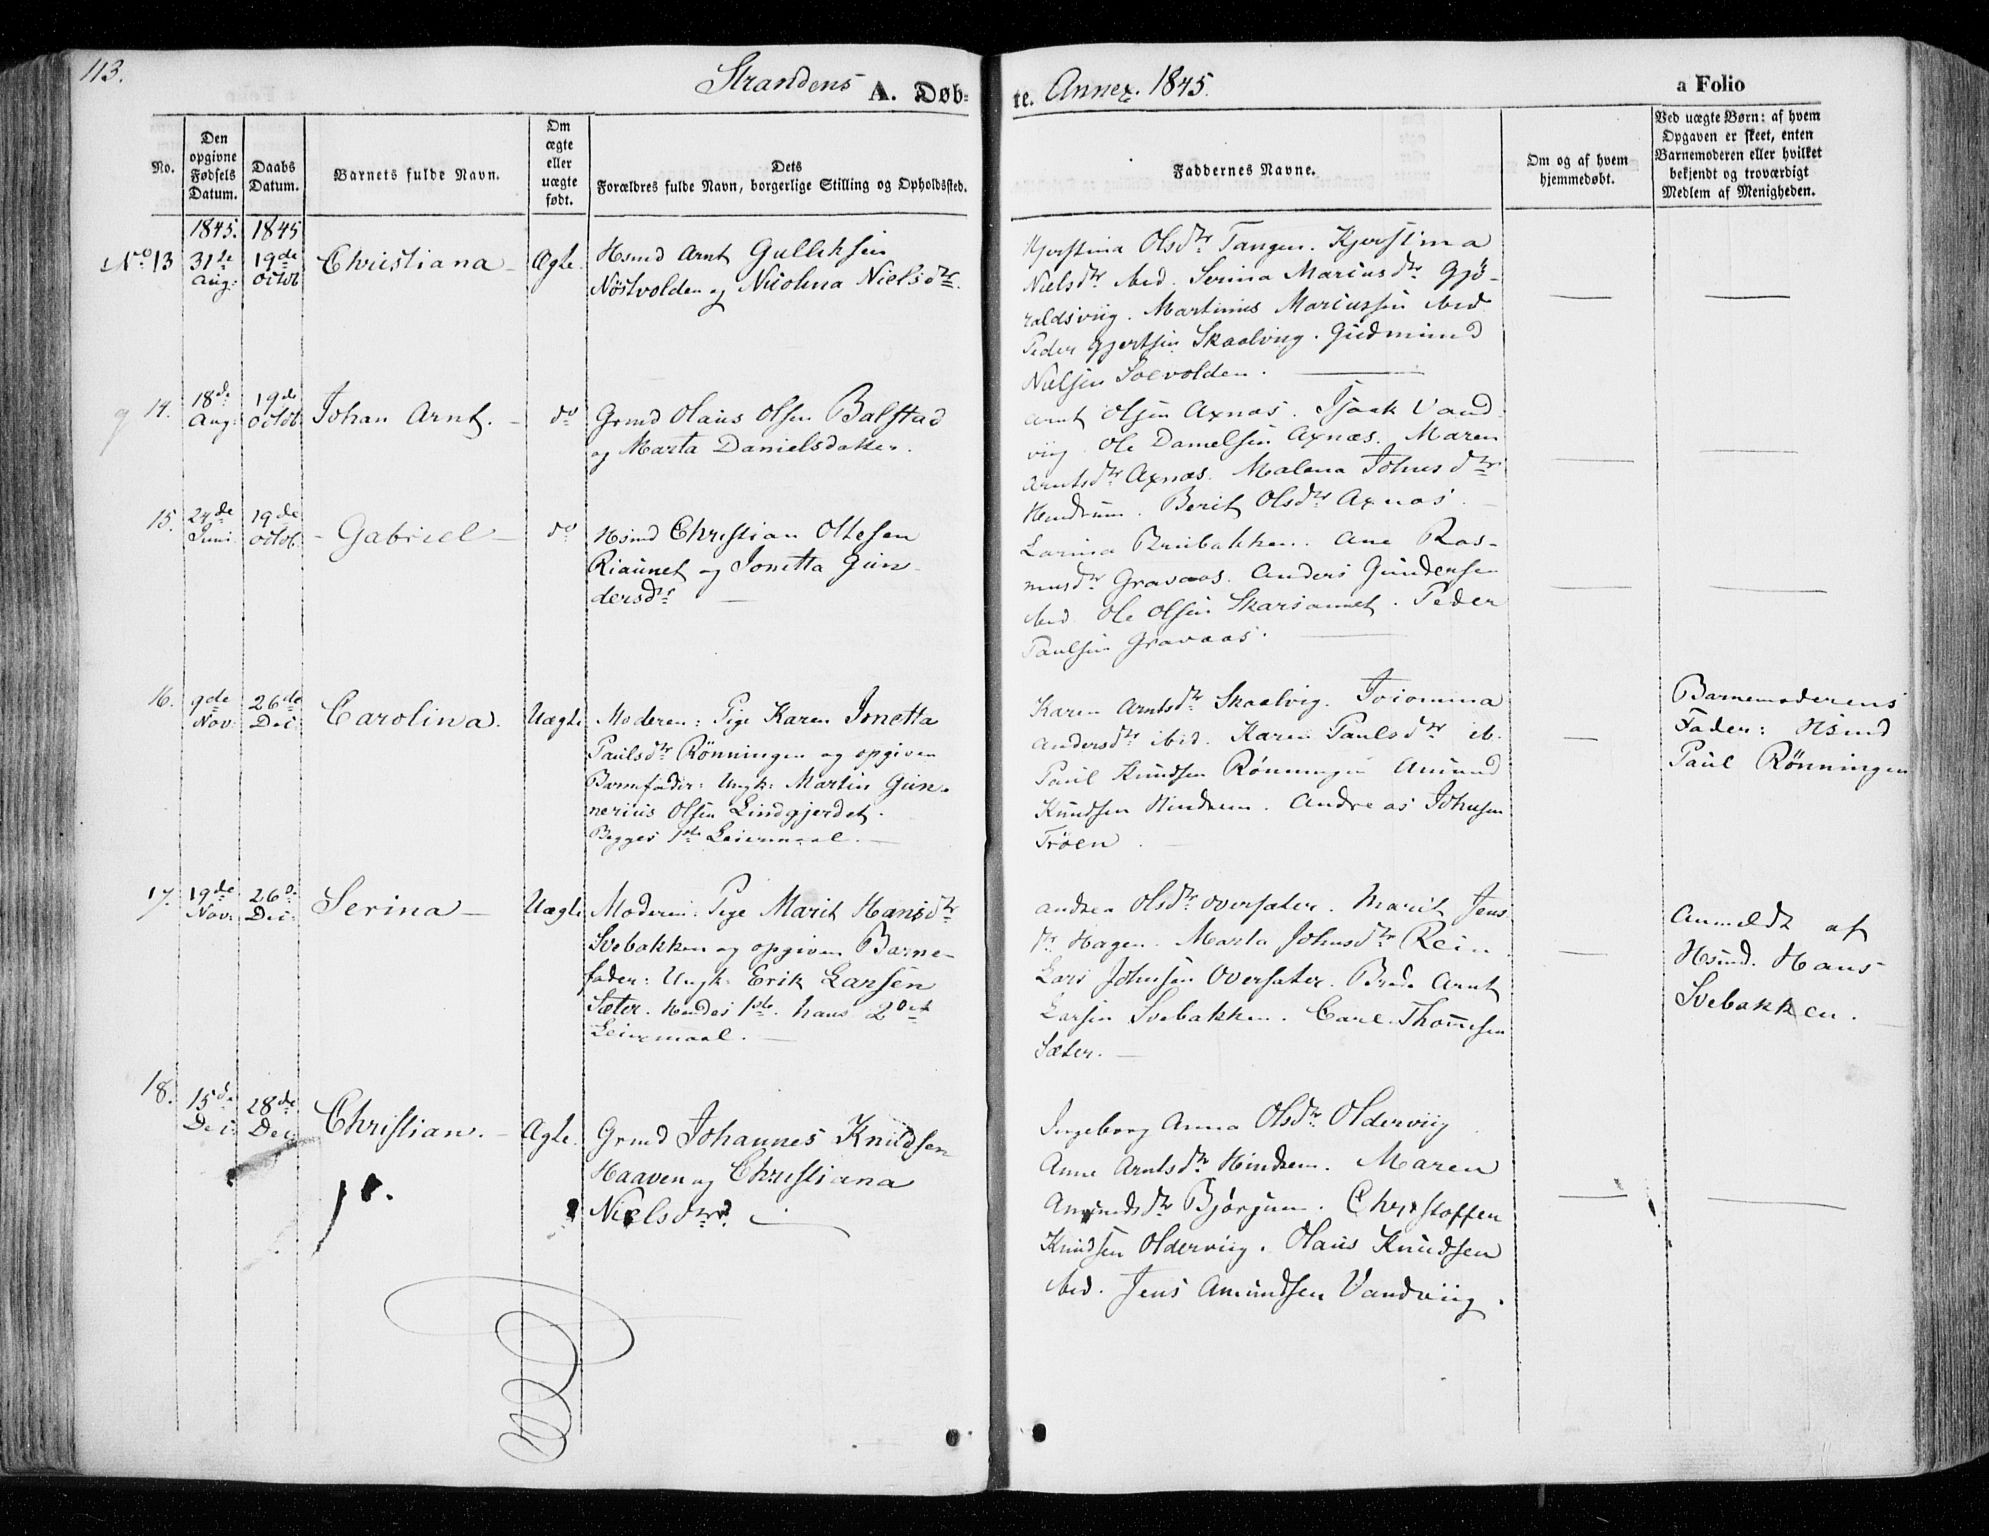 113.
Strandens A. Døb-
te. Annex. 1845.
a Folio
No.
Den
opgivne
Fødsels
Datum.
Daabs
Datum.
Barnets fulde Navn.
Om
ægte
eller
uægte
født.
Dets
Forældres fulde Navn, borgerlige Stilling og Opholdssted.
Faddernes Navne.
Om og af hvem
hjemmedøbt.
Ved uægte Børn: af hvem
Opgaven er skeet, enten
Barnemoderen eller hvilket
bekjendt og troværdigt
Medlem af Menigheden.
1845. 1845
No 13
31te
Aug:
19de
Octob
Christiana
Ægte.
Hsmd Arnt Gulliksen
Nöstvolden og Nicolina Nielsdtr.
Kjerstina Olsdtr Tangen. Kjerstina
Nielsdtr ibid. Serina Mariusdtr Gjö-
raldsviig. Martinus Mariussen ibid
Peder Gjertsen Skaalviig. Gudmund
Nielsen Soevolden.
14.
18de
Aug:
19de
Octob
Johan Arnt.
do
Grmd Olaus Olsen Balstad
og Marta Danielsdatter.
Arnt Olsen Axnæs. Isaak Vand-
viig. Ole Danielsen Axnæs. Maren
Arntsdtr Axnæs. Malena Johnsdtr
Hindrum. Berit Olsdtr Axnæs.
15.
24de
Juni
19de
Octob.
Gabriel
do
Hsmd Christian Ottesen
Riaunet og Jonetta Gun-
dersdtr
Larina Brubakken. Ane Ras-
musdtr Gravaas. Anders Gundersen
ibid. Ole Olsen Skarsaunet. Peder
Paulsen Gravaas.
16.
9de
Nov:
26de
Dec:
Carolina.
Uægte
Moderen: Pige Karen Jonetta
Paulsdtr Rönningen og opgiven
Barnefader: Ungk: Martin Gun-
nerius Olsen Lindgjerdet.
Begges 1ste Leiermaal.
Karen Arntsdtr Skaalvig.
Andersdtr ibid. Karen Paulsdtr ib.
Paul Knudsen Rönningen Amund
Knudsen Hindrem. Andreas Johnsen
Tröen.
Barnemoderens
Fader: Hsmd
Paul Rönningen
17.
19de
Nov:
26de
Dec:
Serina
Uægte
Moderen: Pige Marit Hansdtr
Svebakken og opgiven Barne-
fader: Ungk: Erik Larsen
Sæter. Hendes 1ste. hans 2det
Leiermaal.
Andrea Olsdtr Oversæter. Marit Jens
dtr Hagen. Marta Johnsdtr Rein.
Lars Johnsen Oversæter. Arnt
Larsen Svebakken. Carl Thomesen
Sæter.
Anmeldt af
Hsmd. Hans
Svebakken.
18.
15de
Dec:
28de
Dec:
Christian.
Ægte.
Grmd Johannes Knudsen
Haaven og Christiana
Nielsdtr.
Ingeborg Anna Olsdtr Olderviig
Anne Arntsdtr Hindrem. Maren
Amundsdtr Björgum. Christoffen
Knudsen Olderviig. Olaus Knudsen
ibid. Jens Amundsen Vandviig.